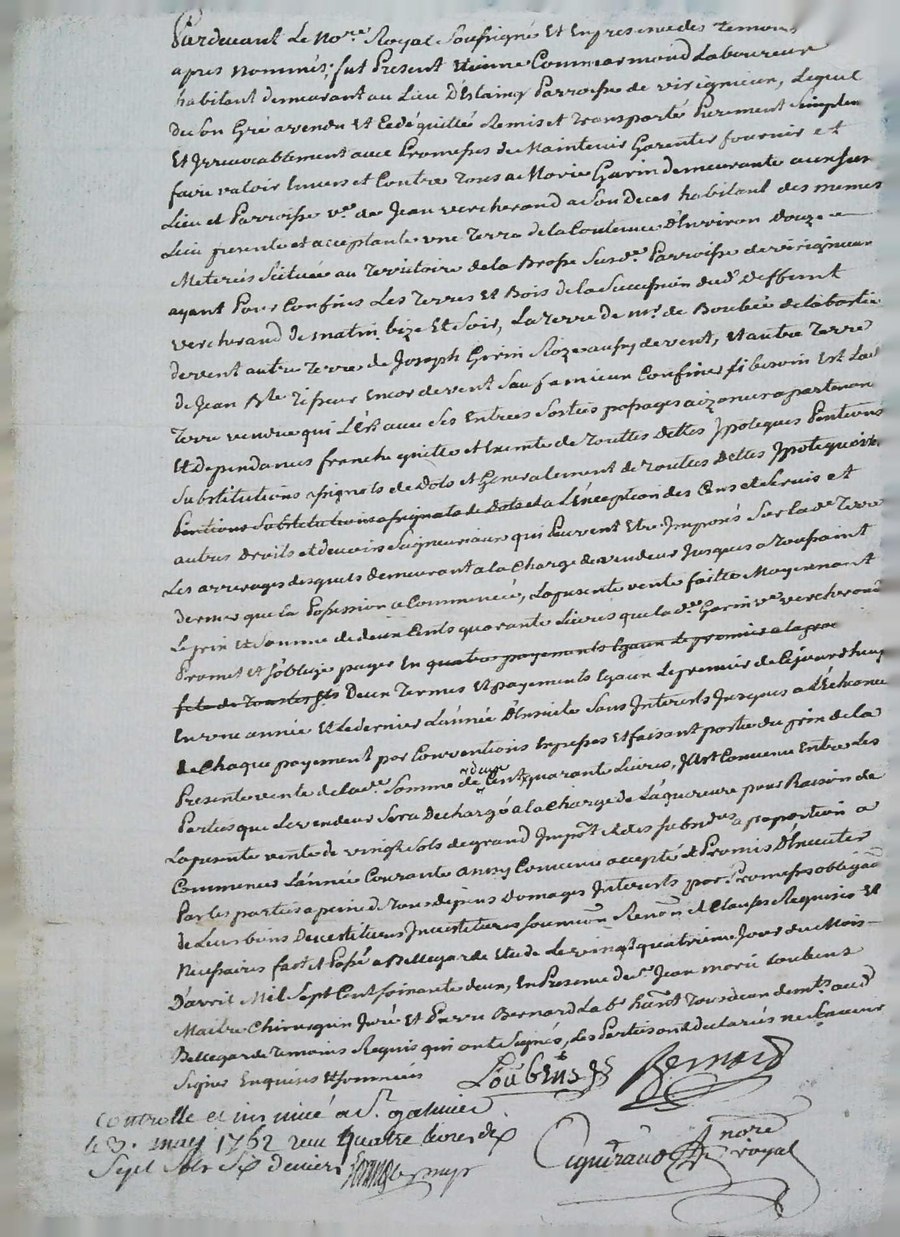 Pardevant Le No.re Royal Soussigné Et En presence des Temoins
apres Nommés; fut Present Etienne Commarmond Laboureur
habitant demeurant au Lieu D'Eslaing Parroisse de virignieu, Lequel
de Son Gré a vendu Et Cedé quitté Remis et Transporté Purement Simplem
Et Irrevocablement avec Promesses de Maintenir Garentir fournir et
faire valoir Envers et Contre Tous a Marie Garin demeurante au susd
Lieu et Parroisse v.e de Jean vercherand a Son Deces habitant des memes
Lieu presente et acceptante une Terre de la Contenue D'Environ Douze
Meterés Scituée au Territoire de la Brosse Susd.e Parroisse de virignieu
ayant Pour Confins Les Terres Et Bois de la Succession dud. Deffunt
vercherand de matin bize Et Soir, La Terre de mr. de Boubée de labastie
de vent autre Terre de Joseph Girin Roze aussy de vent, et autre Terre
de Jean Bte Tisseur Encor de vent Sauf a mieux Confiner Si besoin Est Lad
Terre vendue qui L'Est avec Ses Entrées Sorties passages aizances apartenan
Et Dependances franche quitte et Exempte de Touttes Dettes Ipoteques Pentions
Substitutions assignats de Dots et Generalement de toutes Dettes Ipotequaires
Pentions Substitutions assignats de Dots et a L'Exception des Cens et Servis et
autres Droits et devoirs Seigneuriaux qui Peuvent Etre Imposés Sur lad.e Terre
Les arrerages desquels demeurant a la Charge du vendeur Jusques a Toussaint
dernier que La Possession a Commencée, La presente vente faitte Moyennant
Le prix Et Somme de deux Cents quarante Livres que lad.e Garin v.e vercherand
Promet et S'oblige payer En quatre payements Egaux Le premier a la pro
fete de Toussts Deux Termes Et payements Egaux Le premier de Cejourdhuy
En une année Et Le dernier L'année D'Ensuite Sans Interets Jusques a L'Echeance
de Chaque payement par Conventions Expresses Et faisant partie du prix de la
Presente vente de lad.e Somme de deux Cent quarante Livres, Il Est Convenu Entre Les
Parties que Le vendeur Sera Dechargé a la Charge de L'aquereure pour Raison de
La presente vente de vingt Sols de grand Impôt Et des Subsides a proportion a
Commencer L'année Courante ainsy Convenu accepté et Promis D'Executer
Par les parties a peine de Tous depens Domages Interets par Promesses obligaon
de Leurs biens Devestitures Investitures Soumission Renon et Clauses Requises Et
Necessaires fait et Passé a Bellegarde Etude Le vingt quatrieme Jour du Mois
D'avril Mil Sept Cent Soixante deux, En Presence de Sr Jean marie Loubens
Maitre Chirurgien Juré Et Pierre Bernard Lab.r habitant Tous deux demts aud
Bellegarde Temoins Requis qui ont Signés, Les Parties ont declarées ne Scavoir
Signer Enquises Et Sommées
Loubens
Bernard
Controllé et insinué a St galmier
le 3. may 1762 reçu quatre livres dix
Sept Sols Six deniers
nore
royal